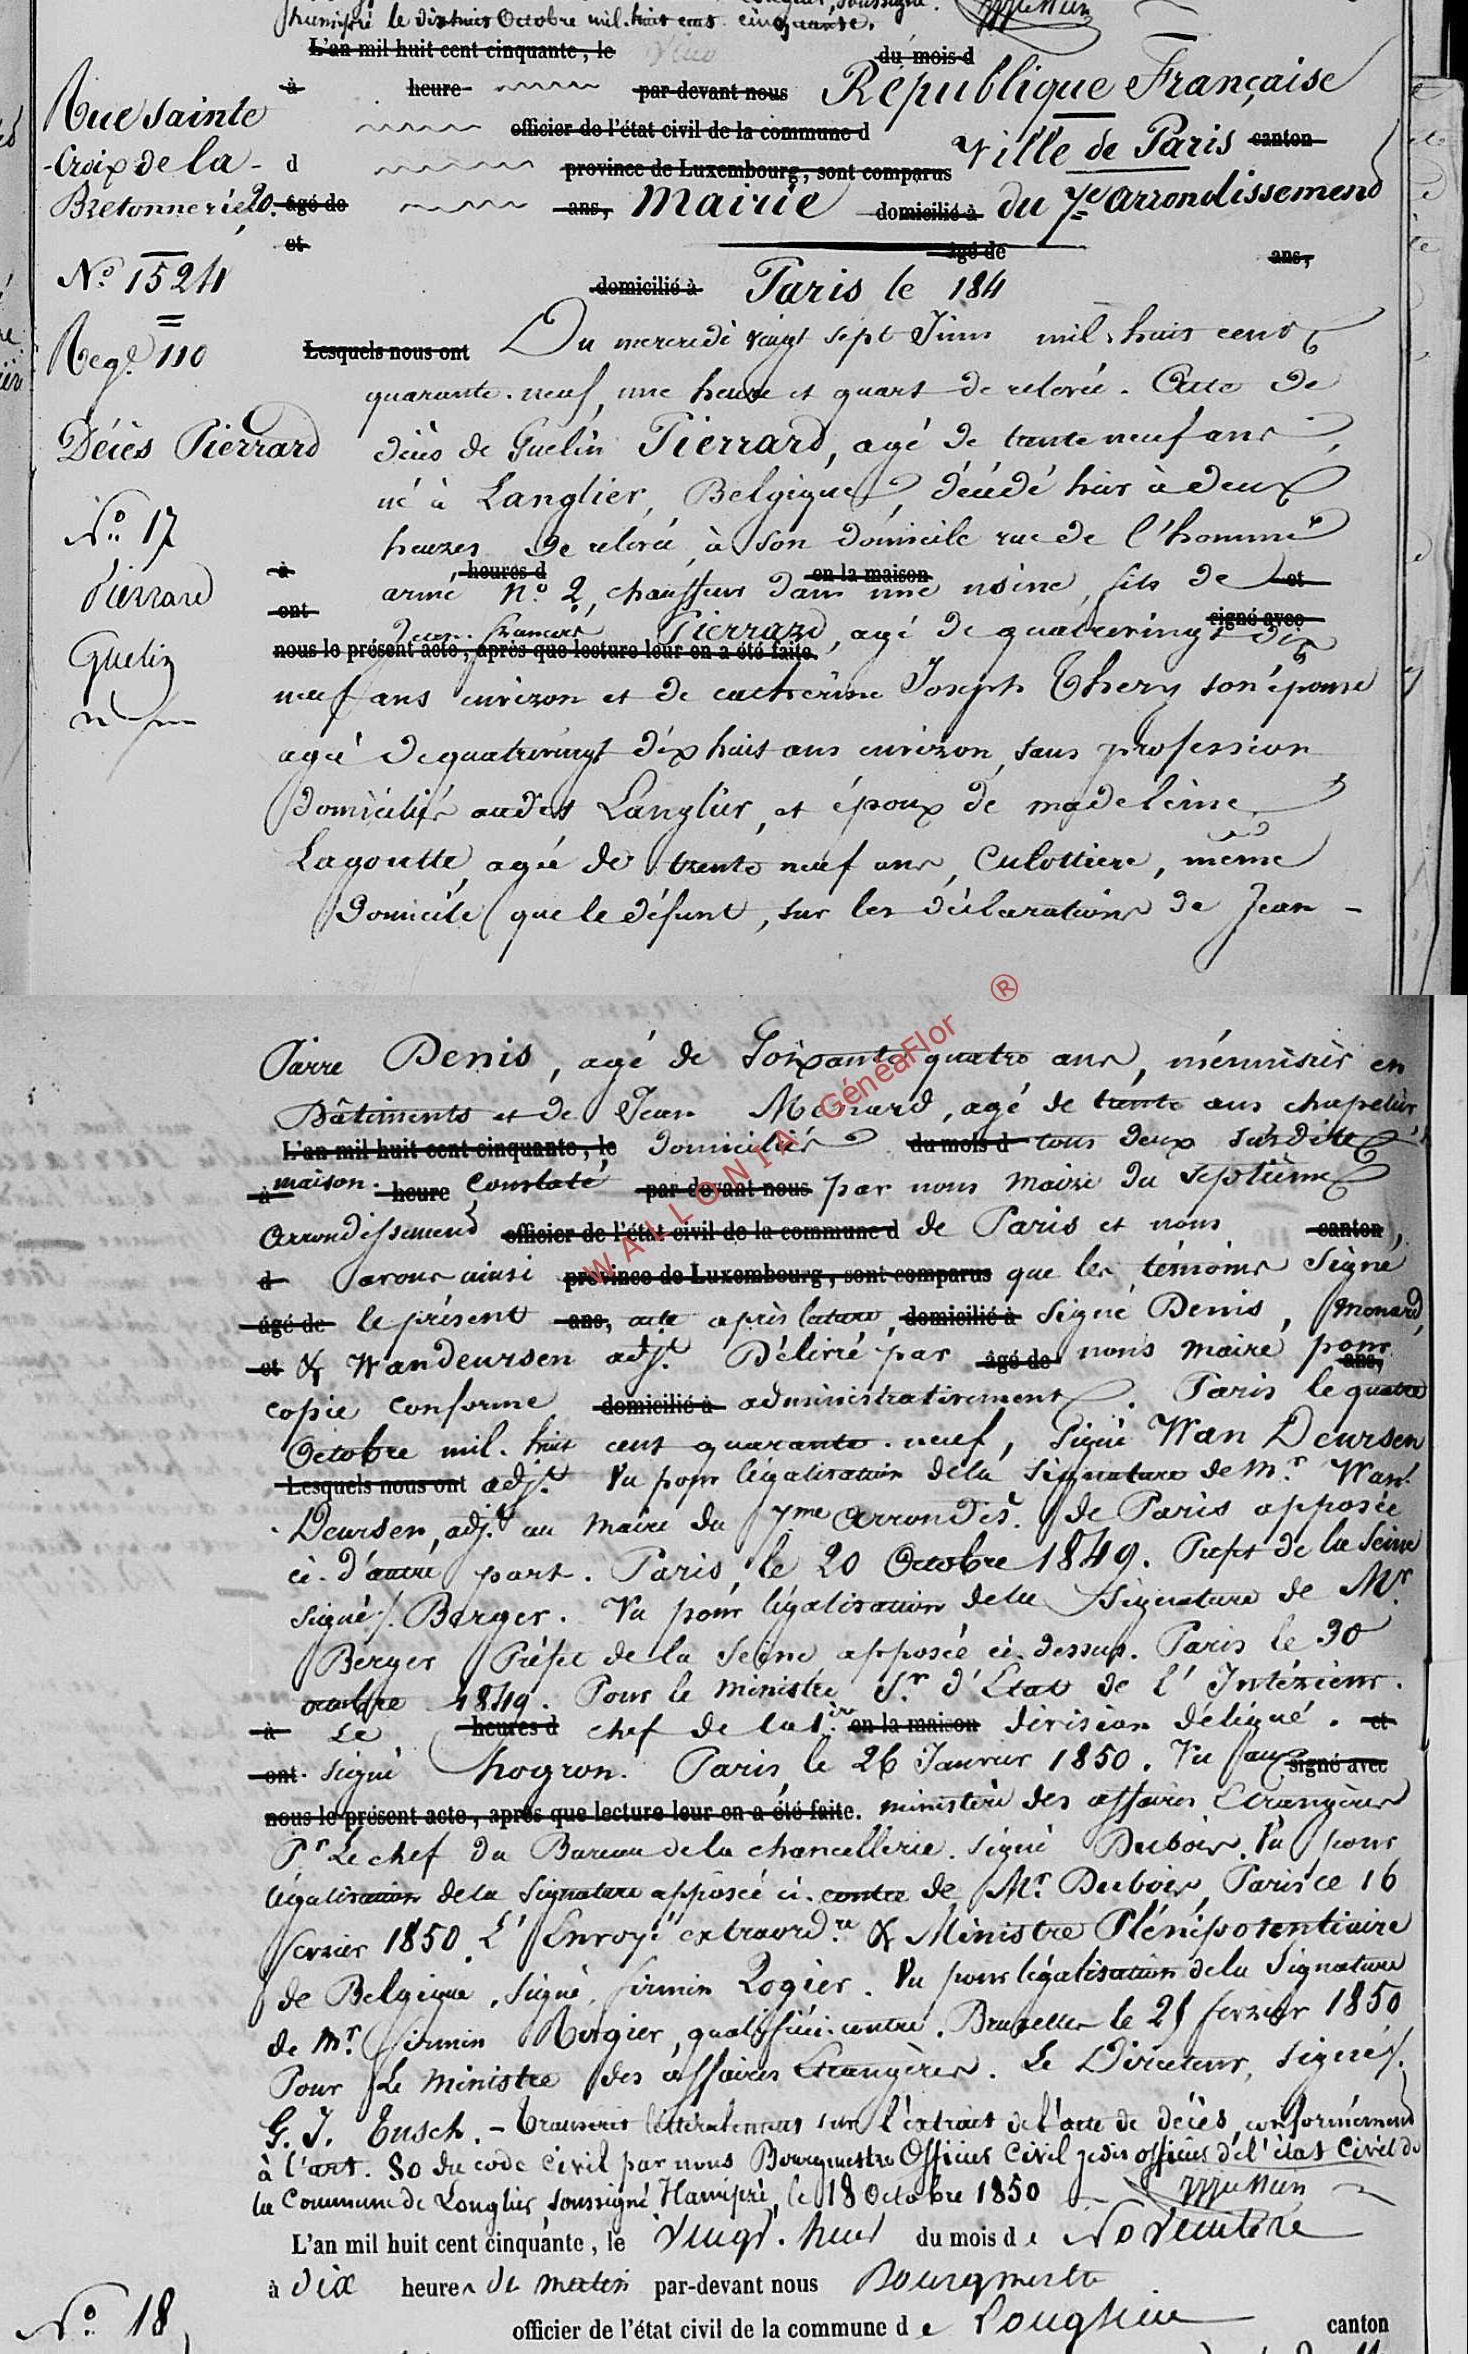 hamipré le dixhuit Octobre mil huit cent cinquante.
L'an mil huit cent cinquante, le du mois d
à heure par-devant nous République Française
Rue Sainte
officier de l'état civil de la commune d Ville de Paris canton
-Croix de la- d province de Luxembourg, sont comparus
Bretonnerie, 20. âgé de ans, Mairie domicilié à du 7e arrondissement
et âgé de ans,
N° 1524
domicilié à Paris le 184
Lesquels nous ont Du mercredi vingt sept Juin mil huit cent
Regre 110
quarante-neuf, une heure et quart de relevée. Acte de
Décès Pierrard
décès de Guelin Pierrard, agé de trente neuf ans,
né à Langlier, Belgique, décédé hier à deux
N° 17
heures de relevée, à son domicile rue de l'homme
à heures d en la maison et
Pierrard
armé n° 2, chauffeur dans une usine, fils de
ont signé avec
Jean François Pierrard, agé de quatrevingt dix
nous le présent acte, après que lecture leur en a été faite.
Guelin
neuf ans environ et de catherine Joseph Thery son épouse
agée de quatrevingt dix huit ans environ, sans profession
domiciliés audit Langlier, et époux de madeleine
Lagoutte, agée de trente neuf ans, Culottiere, même
domicile que le défunt, sur les déclarations de Jean -
WALLONIA GénéaFlor ®
Pierre Denis, agé de Soixante quatre ans, ménuisier en
Bâtiments et de Jean Menard, agé de trente ans chapelier,
L'an mil huit cent cinquante, le domiciliés du mois d tous deux susdite
à maison. heure Constaté par-devant nous par nous Maire du septième
arrondissement officier de l'état civil de la commune d de Paris et nous canton,
d avons ainsi province de Luxembourg, sont comparus que les témoins Signé
âgé de le présent ans, acte après lecture, domicilié à Signé Denis, Menard,
et & Wandeursen adjt. Délivré par âgé de nous maire pour ans,
copie conforme domicilié à administrativement. Paris le quatre
Octobre mil huit cent quarante-neuf, Signé Wan Deursen
Lesquels nous ont adjt. Vu pour légalisation de la Signature de Mr. Wan
Deursen, adjt au Maire du 7me arrondist. de Paris apposée
ci-d'autre part. Paris, le 20 Octobre 1849. Prefet de la Seine
signé/. Berger. Vu pour légalisation de la Signature de Mr.
Berger Préfet de la Seine apposée ci-dessus. Paris le 30
octobre 1849. Pour le ministre Sr. d'Etat de l'Intérieur.
à Le heures d chef de la 1ère en la maison division délégué. et
ont signé hogron. Paris, le 26 Janvier 1850. Vu au signé avec
nous le présent acte, après que lecture leur en a été faite. ministère des affaires Etrangères
Pr Le chef du Bureau de la chancellerie. signé Dubois. Vu pour
légalisation de la Signature apposée ci-contre de Mr. Dubois, Paris ce 16
fevrier 1850. L'Envoyé extraordre. & Ministre Plénipotentiaire
de Belgique, signé, firmin Rogier. Vu pour légalisation de la Signature
de Mr. Firmin Rogier, qualifié ci-contre. Bruxelles le 21 fevrier 1850
Pour Le Ministre des affaires Etrangères. Le Directeur, signé/.
G. J. Eusch. - Transcrit littéralement sur l'extrait de l'acte de décès, conformément
à l'art. 80 du code Civil par nous Bourgmestre Officier Civil de l'état Civil de
la Commune de Longlier, soussigné Hamipré, le 18 Octobre 1850
L'an mil huit cent cinquante, le vingt-huit du mois de Novembre
à dix heures du matin par-devant nous Bourgmestre
N° 18
officier de l'état civil de la commune de Longlier canton